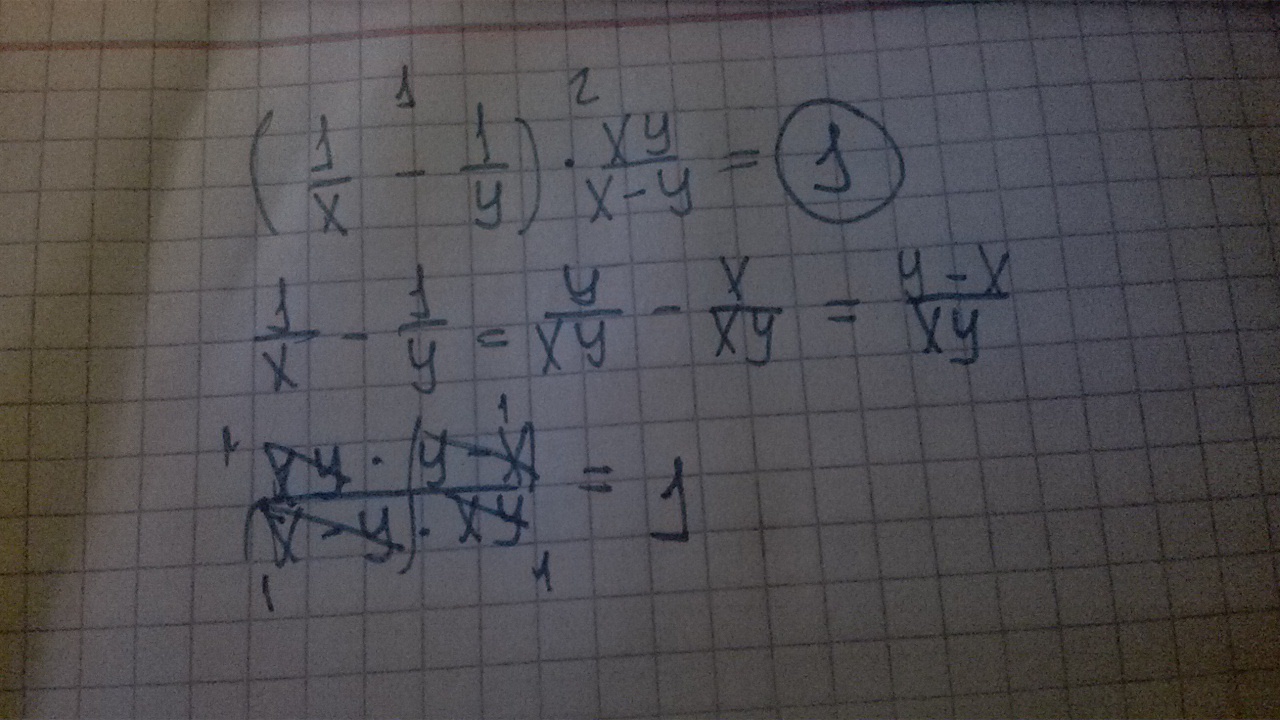 (1/x - 1/y) · xy/(x-y) = 1
1 2
1/x - 1/y = y/xy - x/xy = (y-x)/xy
xy · (y-x) / (x-y) · xy = 1
1 1 1 1